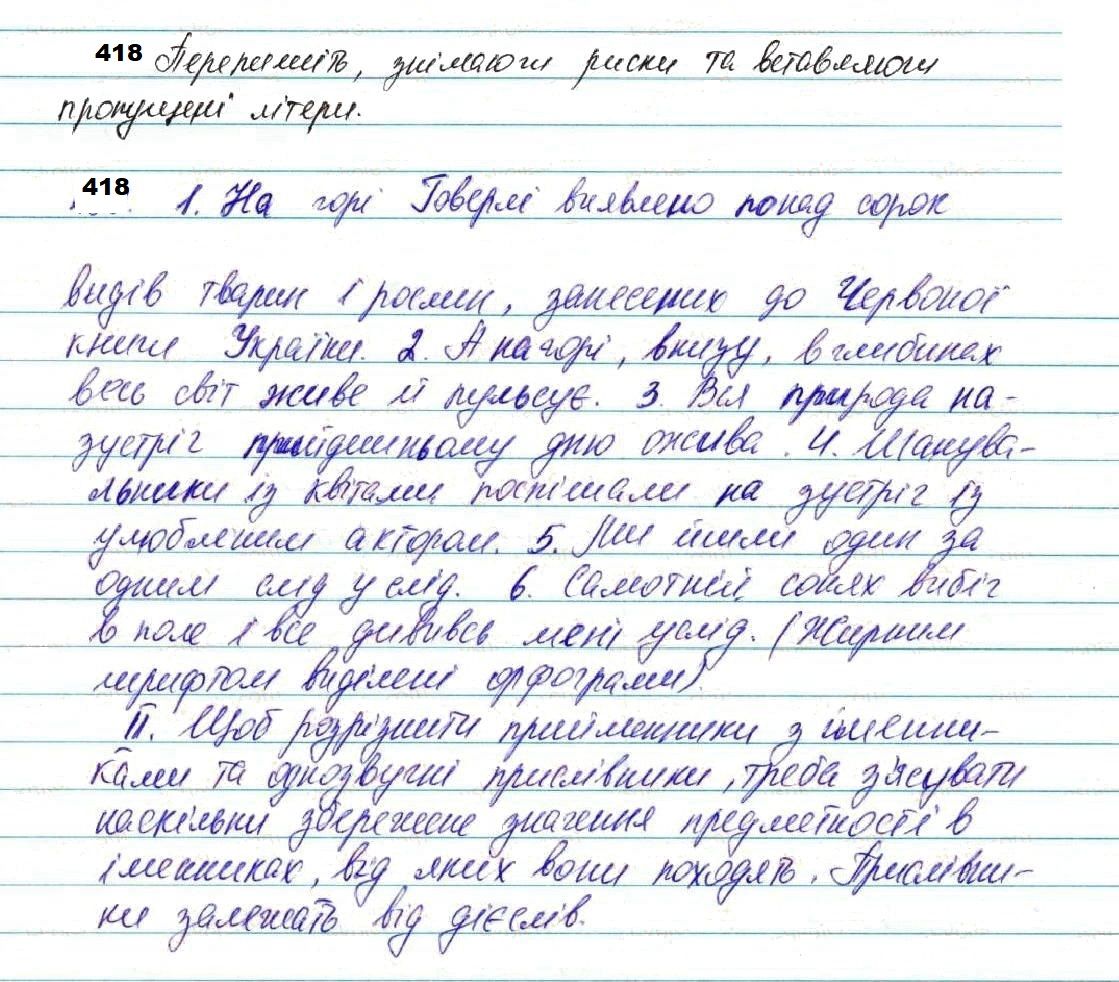 418 Перепишіть, знімаючи риски та вставляючи
пропущені літери.
418 1. На горі Говерлі виявлено понад сорок
видів тварин і рослин, занесених до Червоної
книги України. 2. А нагорі, внизу, в глибинах
весь світ живе й пульсує. 3. Вся природа на-
зустріч прийдешньому дню ожива. 4. Шанува-
льники із квітами поспішали на зустріч із
улюбленим актором. 5. Ми йшли один за
одним слід у слід. 6. Самотній сонях вибіг
в поле і все дививсь мені услід. (Жирним
шрифтом виділені орфограми).
II. Щоб розрізнити прийменники з іменни-
ками та однозвучні прислівники, треба з'ясувати
наскільки збережене значення предметності в
іменниках, від яких вони походять. Прислівни-
ки залежать від дієслів.